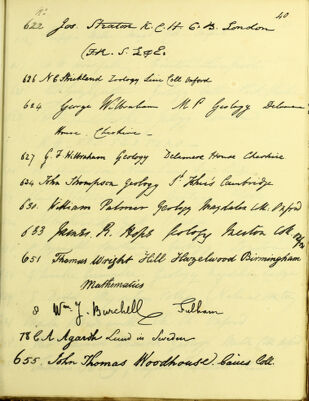 No. 40
622 Jos. Straton K.C.H. C.B. London
F.R.S. L & E.
626 N E Strickland Zoology Line Coll Oxford
624 George Wilbraham M P Geology Delamere
House. Cheshire -
627 G. F. Wilbraham Geology Delamere House Cheshire
634 John Thompson Geology St John's Cambridge
631 William Palmer Geology Magdalen Coll. Oxford
633 James R. Hope Geology Merton Coll
651 Thomas Wright Hill Hazelwood Birmingham
Mathematics
8 Wm J. Burchell Fulham
78 C A Agardh Lund in Sweden
655. John Thomas Woodhouse. Caius Coll.